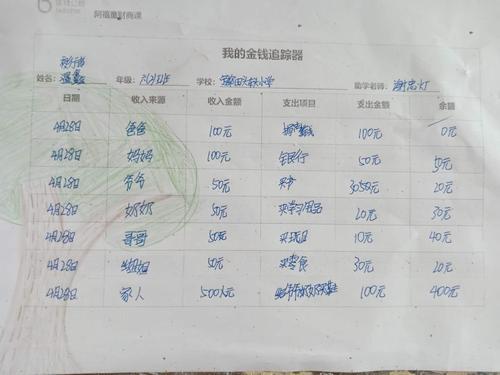 阿福童财商课
我的金钱追踪器
姓名： 年级： 学校： 小学 助学老师：
日期 收入来源 收入金额 支出项目 支出金额 余额
4月28日 爸爸 100元 100元 0元
4月28日 妈妈 100元 存银行 50元 50元
4月28日 爷爷 50元 买书 20元
4月28日 奶奶 50元 买学习用品 20元 30元
4月28日 哥哥 50元 买玩具 10元 40元
4月28日 姐姐 50元 买零食 30元 20元
4月28日 家人 500元 100元 400元